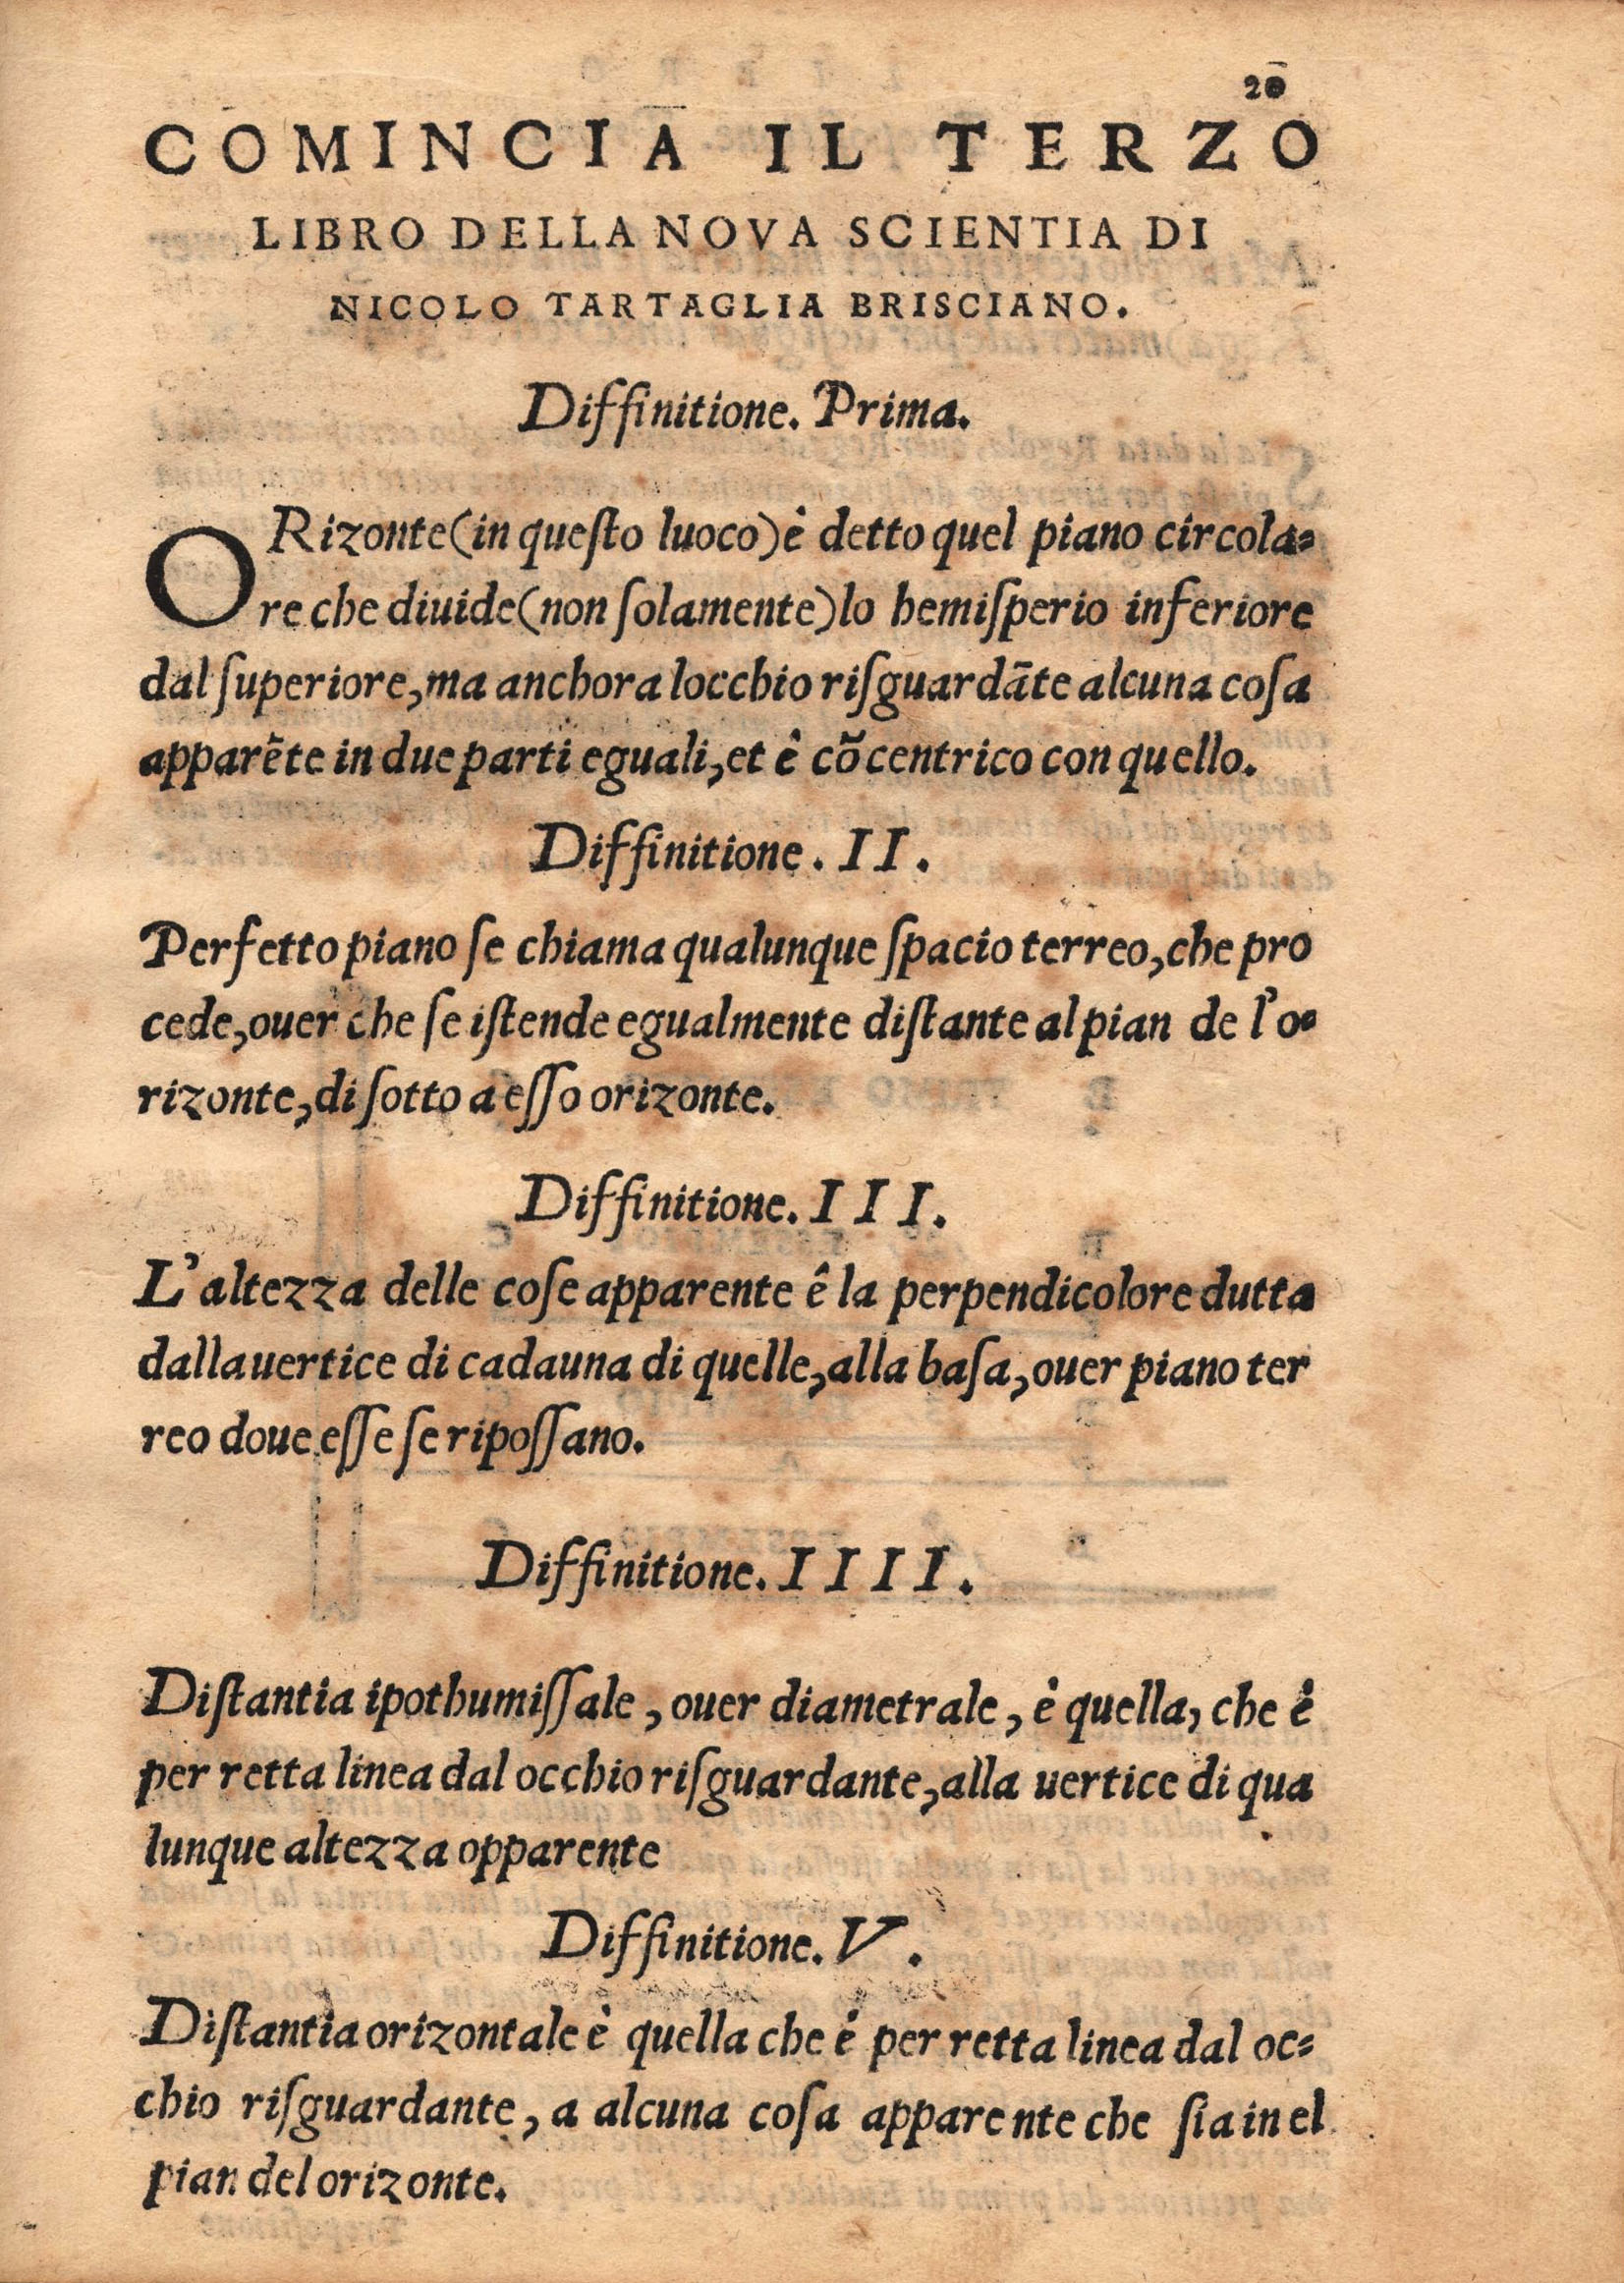 20
COMINCIA IL TERZO
LIBRO DELLA NOVA SCIENTIA DI
NICOLO TARTAGLIA BRISCIANO.
Diffinitione. Prima.
ORizonte(in queſto luoco)è detto quel piano circola=
re che diuide(non ſolamente)lo hemiſperio inferiore
dal ſuperiore,ma anchora locchio riſguardāte alcuna coſa
apparēte in due parti eguali,et ê cōcentrico con quello.
Diffinitione. II.
Perfetto piano ſe chiama qualunque ſpacio terreo,che pro
cede,ouer che ſe iſtende egualmente diſtante al pian de l'o=
rizonte,di ſotto a eſſo orizonte.
Diffinitione. III.
L'altezza delle coſe apparente ê la perpendicolore dutta
dalla uertice di cadauna di quelle,alla baſa,ouer piano ter
reo doue eſſe ſe ripoſſano.
Diffinitione. IIII.
Diſtantia ipothumiſſale, ouer diametrale, è quella, che è
per retta linea dal occhio riſguardante,alla uertice di qua
lunque altezza opparente
Diffinitione. V.
Diſtantia orizontale è quella che é per retta linea dal oc=
chio riſguardante, a alcuna coſa apparente che ſia in el
pian del orizonte.